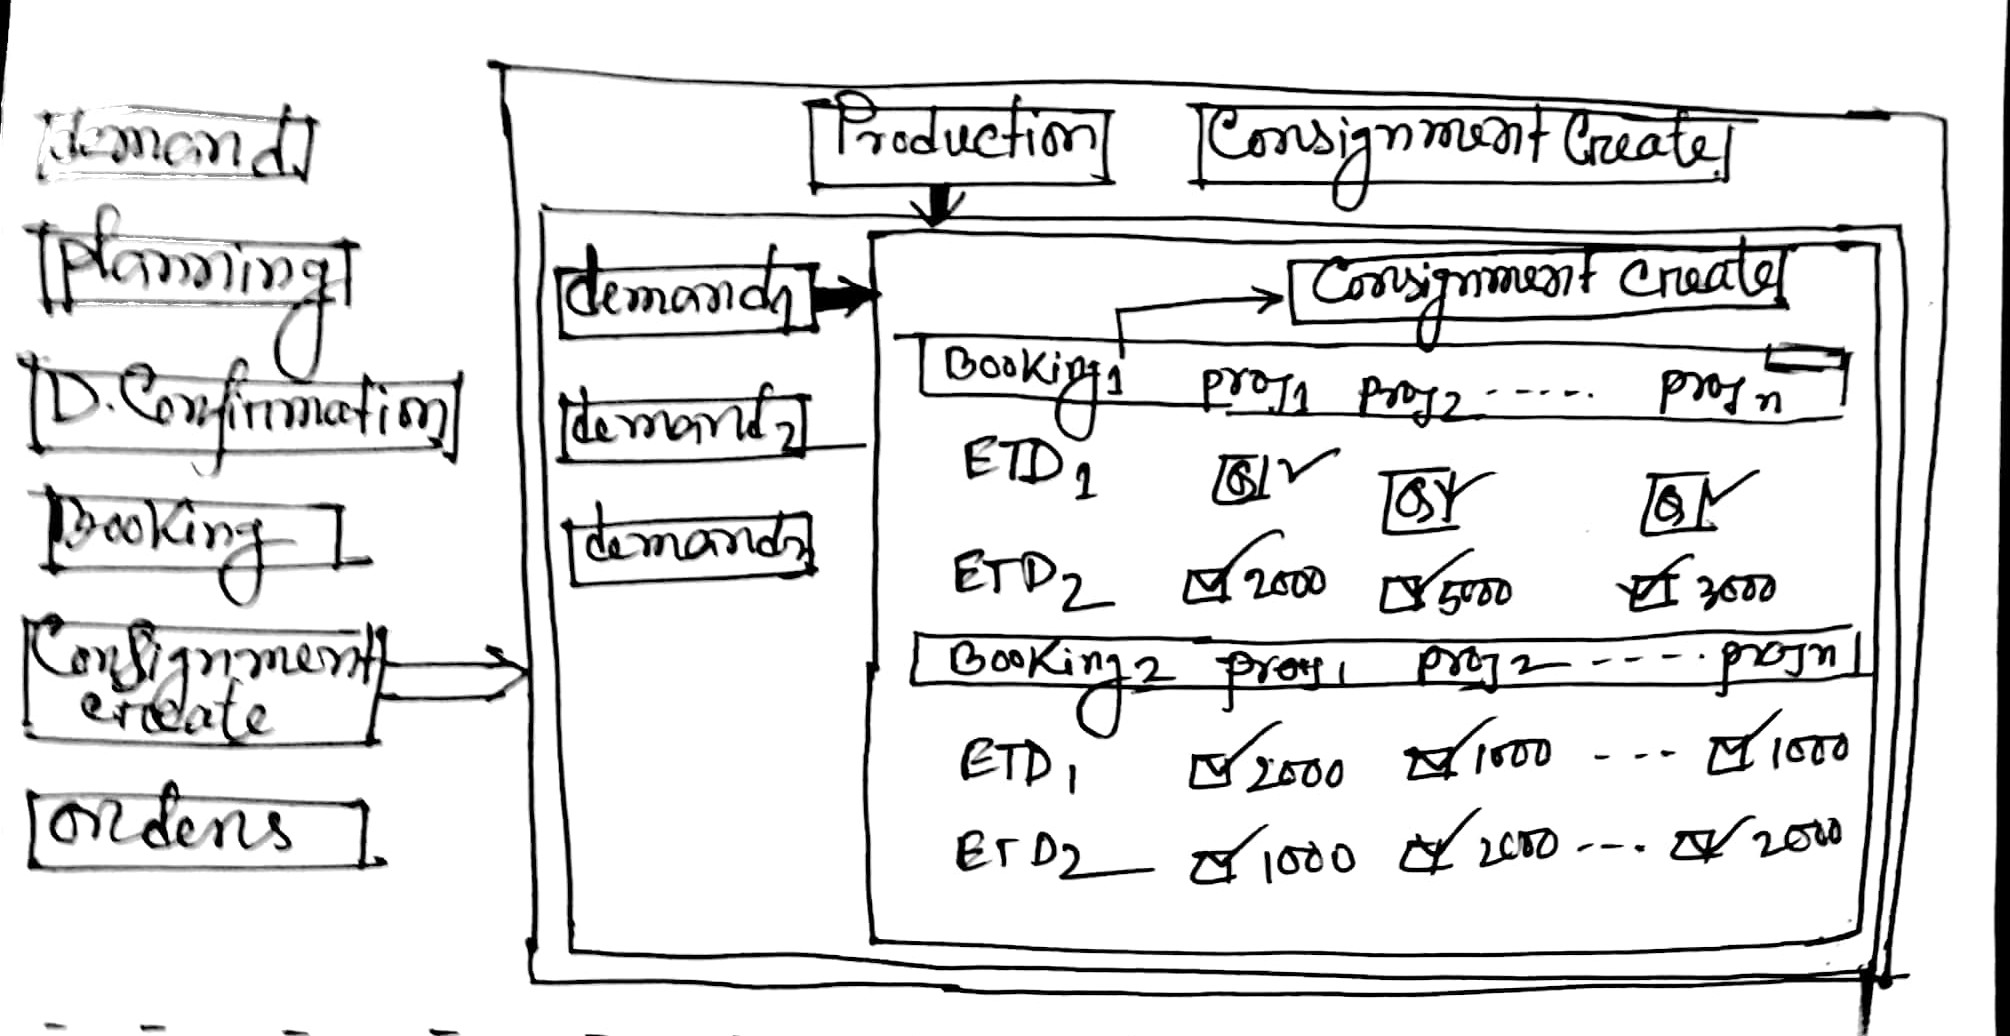 demand
planning
D. Confirmation
Booking
Consignment
create
orders
Production
Consignment Create
demand1
demand2
demand3
Consignment create
Booking1 proj1 proj2 ------ proj n
ETD1 Q Q Q
ETD2 2000 5000 3000
Booking2 proj1 proj2 ----- projn
ETD1 2000 1000 ---- 1000
ETD2 1000 2000 ---- 2000